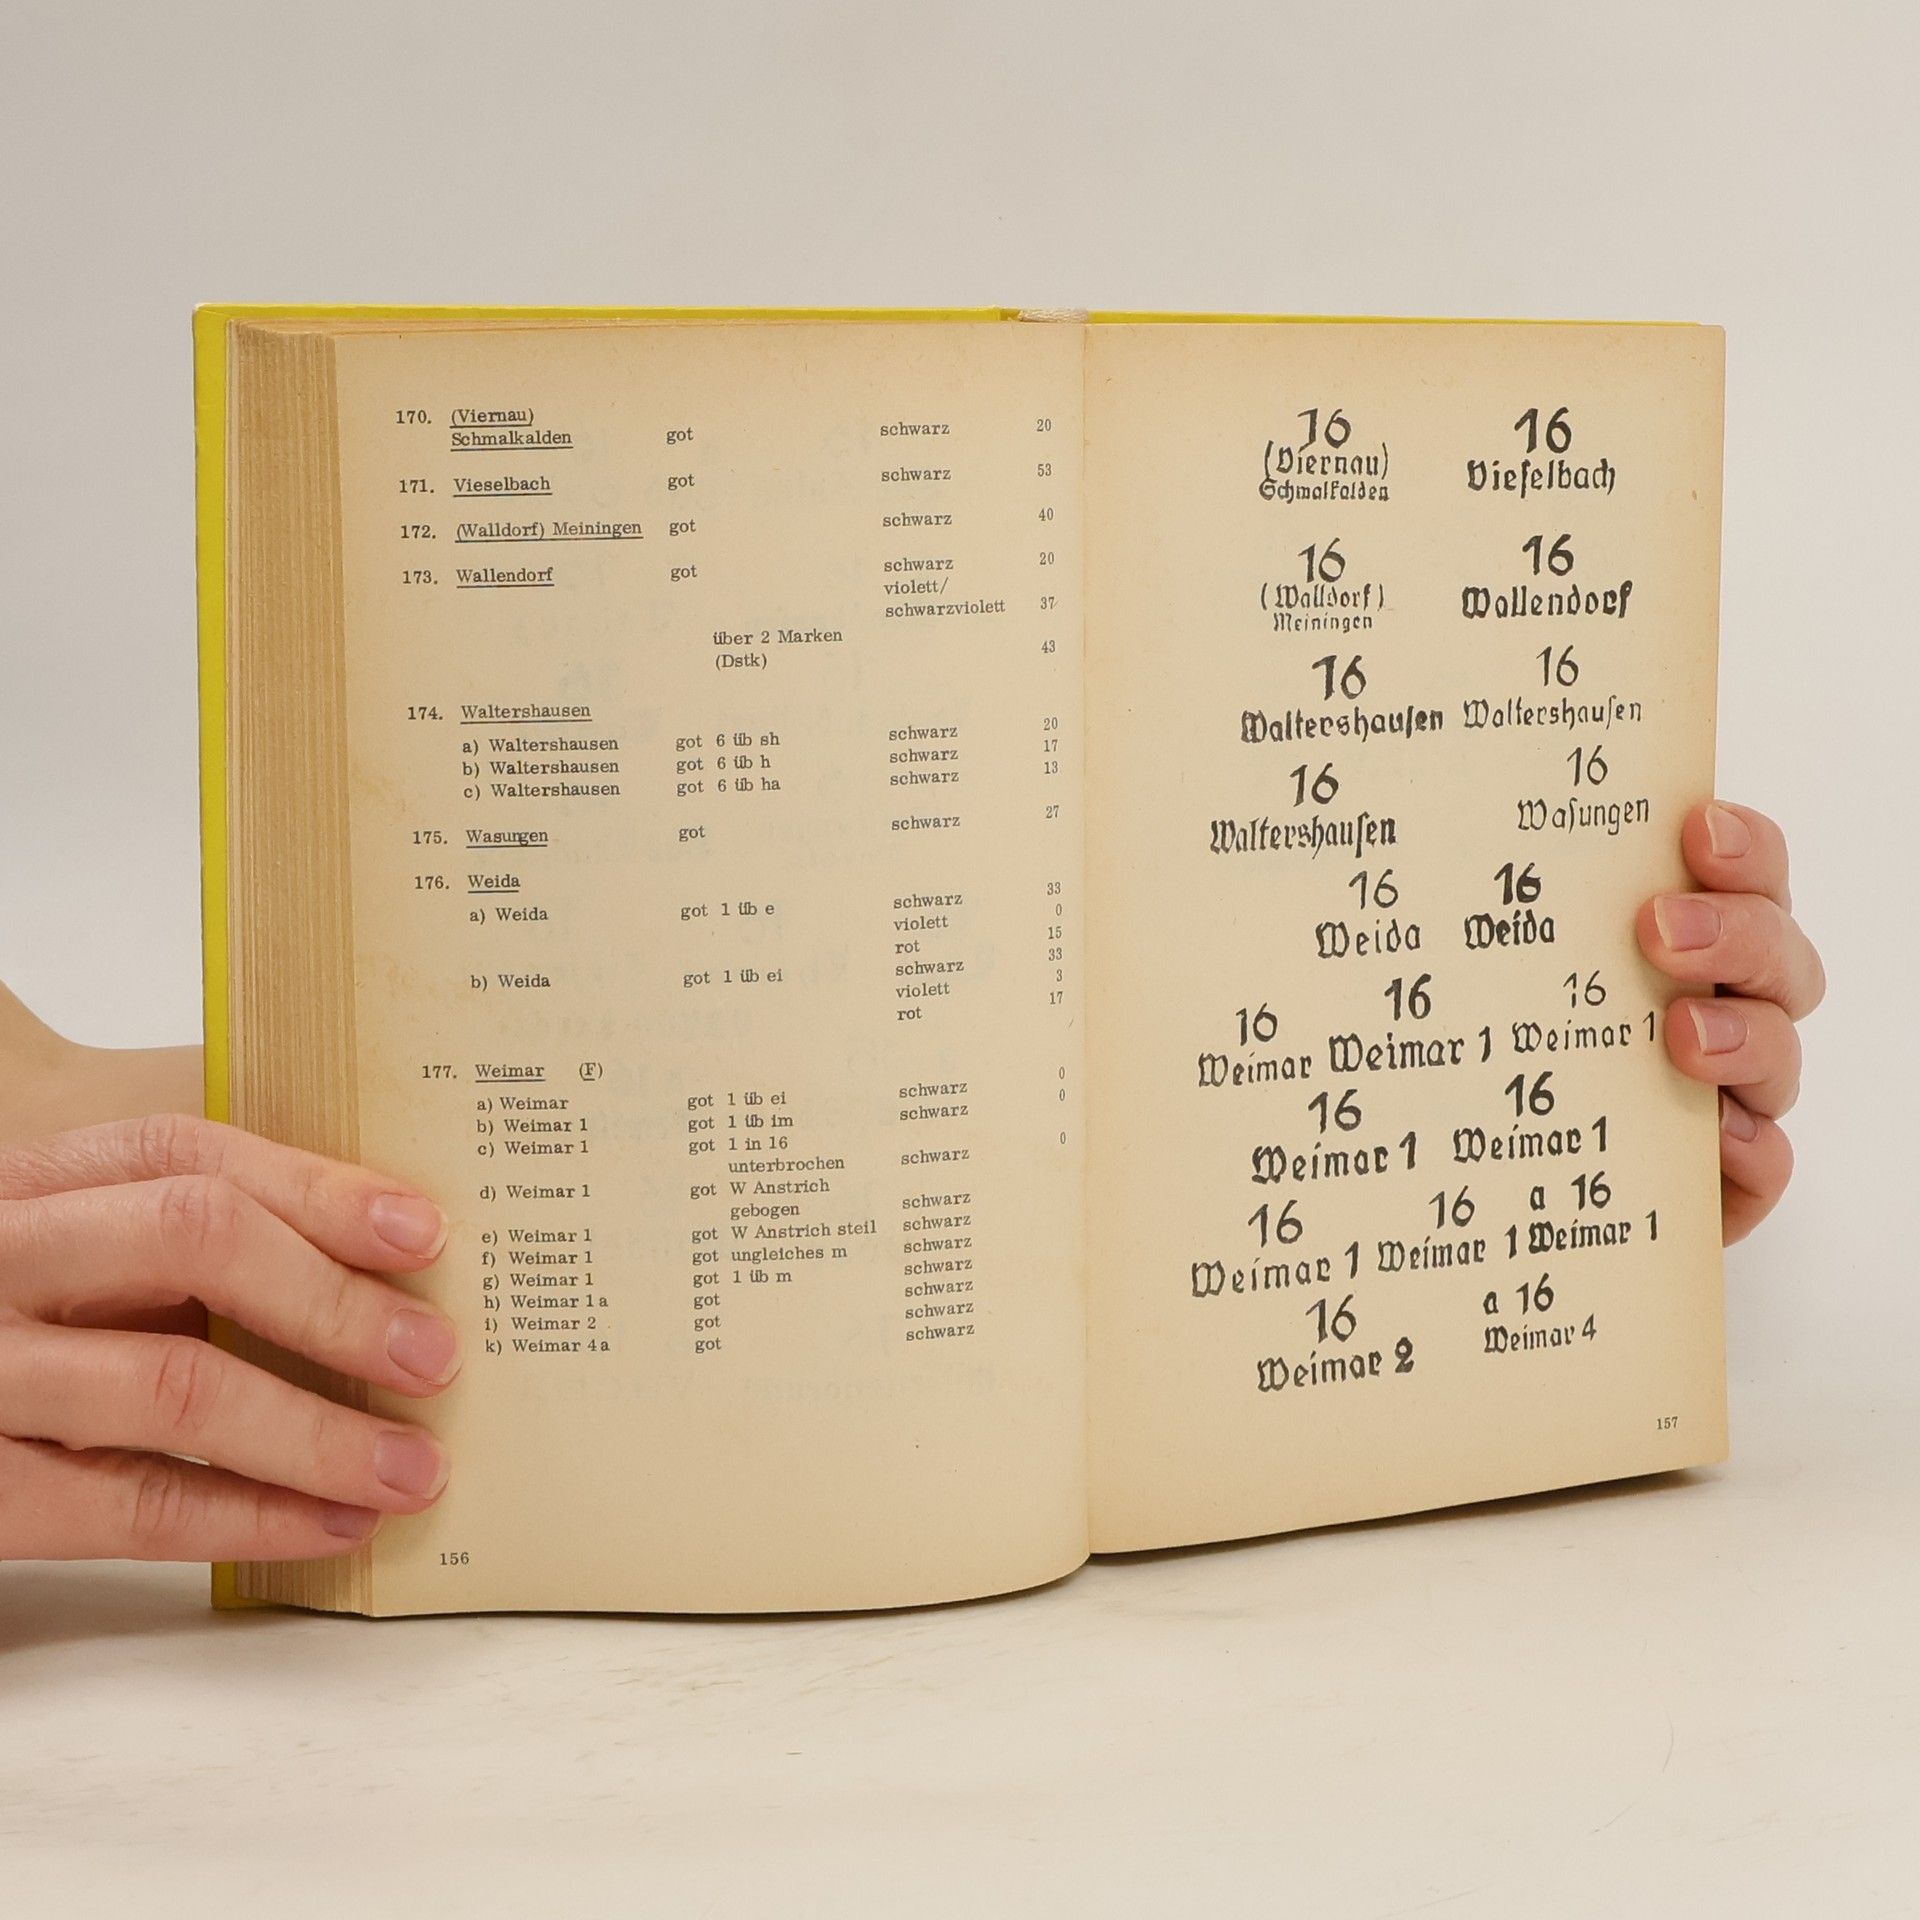 170. (Viernau)
Schmalkalden got schwarz 20
171. Vieselbach got schwarz 53
172. (Walldorf) Meiningen got schwarz 40
173. Wallendorf got schwarz 20
violett/
schwarzviolett 37
über 2 Marken
(Dstk) 43
174. Waltershausen
a) Waltershausen got 6 üb sh schwarz 20
b) Waltershausen got 6 üb h schwarz 17
c) Waltershausen got 6 üb ha schwarz 13
175. Wasungen got schwarz 27
176. Weida
a) Weida got 1 üb e schwarz 33
violett 0
rot 15
b) Weida got 1 üb ei schwarz 33
violett 3
rot 17
177. Weimar (F)
a) Weimar got 1 üb ei schwarz 0
b) Weimar 1 got 1 üb im schwarz 0
c) Weimar 1 got 1 in 16
unterbrochen schwarz 0
d) Weimar 1 got W Anstrich
gebogen schwarz
e) Weimar 1 got W Anstrich steil schwarz
f) Weimar 1 got ungleiches m schwarz
g) Weimar 1 got 1 üb m schwarz
h) Weimar 1 a got schwarz
i) Weimar 2 got schwarz
k) Weimar 4 a got schwarz
156
16 16
(Viernau) Vieselbach
Schmalkalden
16 16
(Walldorf) Wallendorf
Meiningen
16 16
Waltershausen Waltershausen
16 16
Waltershausen Wasungen
16 16
Weida Weida
16 16 16
Weimar Weimar 1 Weimar 1
16 16
Weimar 1 Weimar 1
16 16 a 16
Weimar 1 Weimar 1 Weimar 1
16 a 16
Weimar 2 Weimar 4
157